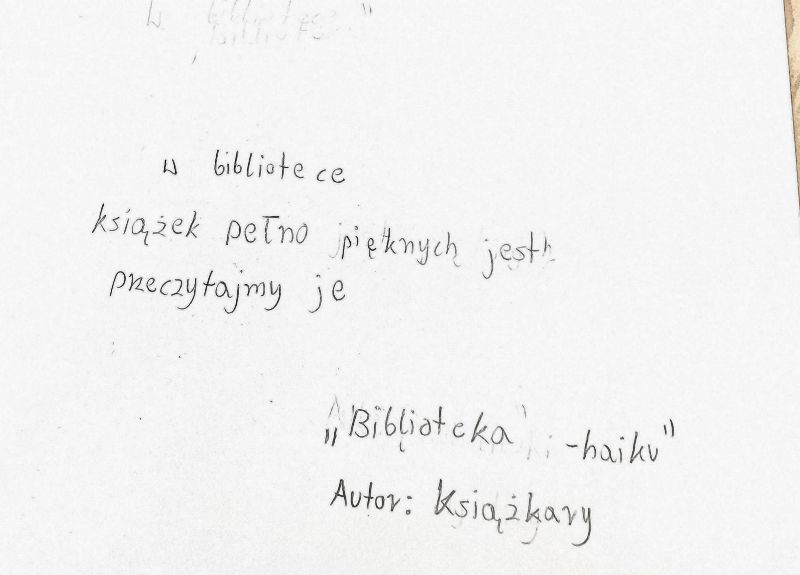 w bibliotece
książek pełno pięknych jest
przeczytajmy je
„Biblioteka -haiku"
Autor: Książkary